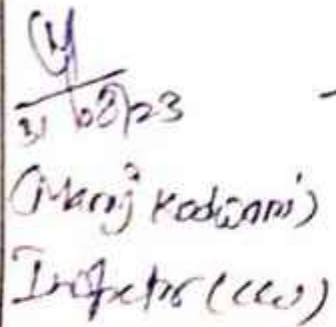 31/08/23
(Manoj Kadwani)
Inspector (CCW)